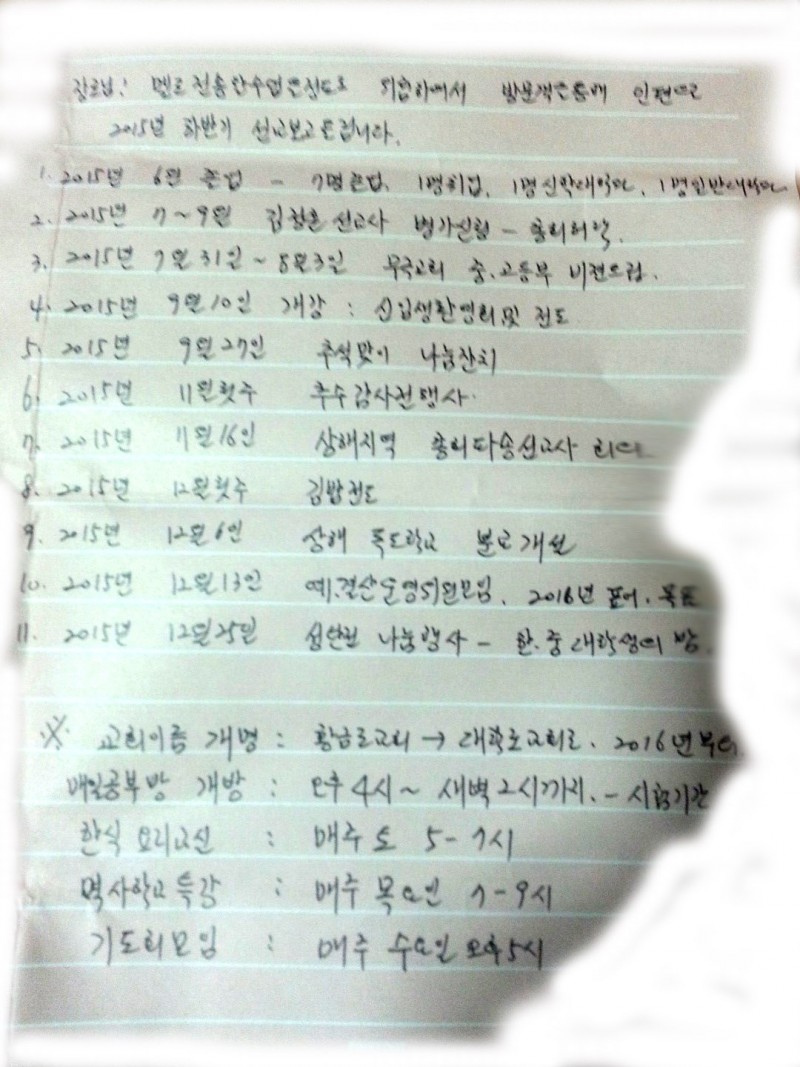 장로님! 멜로 전송 할 수 없는 정도로 위험하여서 방문객을 통해 인편으로
2015년 하반기 선교보고 드립니다.
1. 2015년 6월 졸업 - 7명 졸업, 1명취업, 1명신학대학다, 1명일반대학다
2. 2015년 7~9월 선교사 병가신청 - 총회허락.
3. 2015년 7월 31일~8월3일 교회 중.고등부 비젼트립.
4. 2015년 9월 10일 개강 : 신입생환영회및 전도
5. 2015년 9월 27일 추석맞이 나눔잔치
6. 2015년 11월첫주 추수감사절행사.
7. 2015년 11월16일 상해지역 총회파송선교사
8. 2015년 12월첫주 김밥전도
9. 2015년 12월6일 상해 독도학교 분교개설
10. 2015년 12월13일 예.결산운영위원모임. 2016년 표어.목표
11. 2015년 12월25일 성탄절 나눔행사 - 한.중 대학생의 밤.
※ 교회이름 개명 : 황금로교회 → 대학로교회로. 2016년부터
매일공부방 개방 : 오후4시~ 새벽2시까지. - 시험기간
한식 요리교실 : 매주 토 5-7시
역사학교특강 : 매주 목요일 7-9시
기도회모임 : 매주 수요일 오후5시